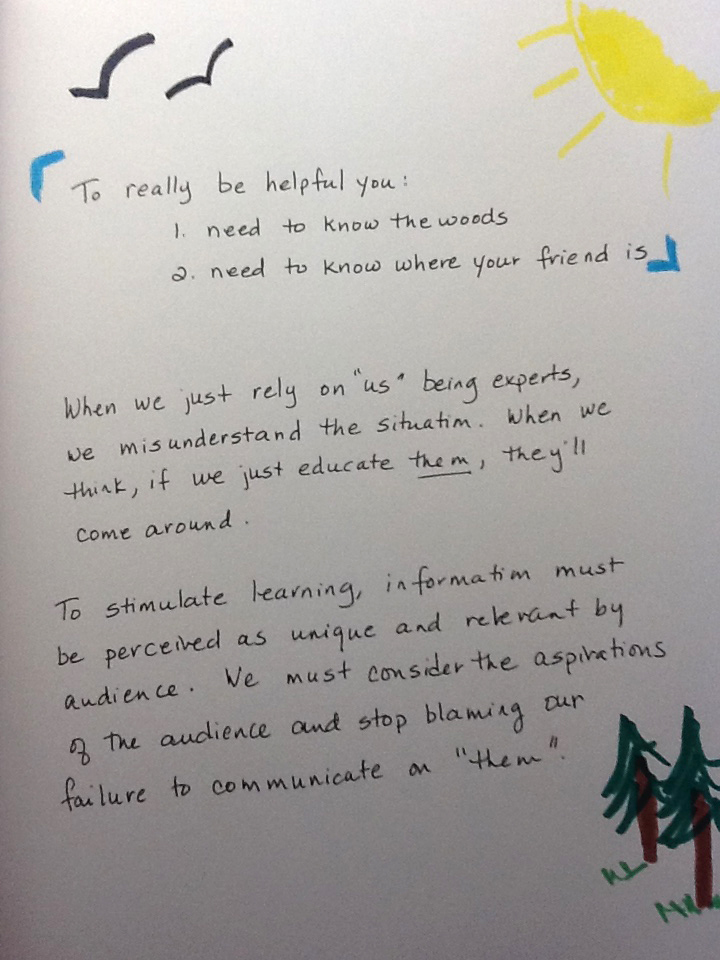 To really be helpful you:
1. need to know the woods
2. need to know where your friend is
When we just rely on "us" being experts,
we misunderstand the situation. When we
think, if we just educate them, they'll
come around.
To stimulate learning, information must
be perceived as unique and relevant by
audience. We must consider the aspirations
of the audience and stop blaming our
failure to communicate on "them".